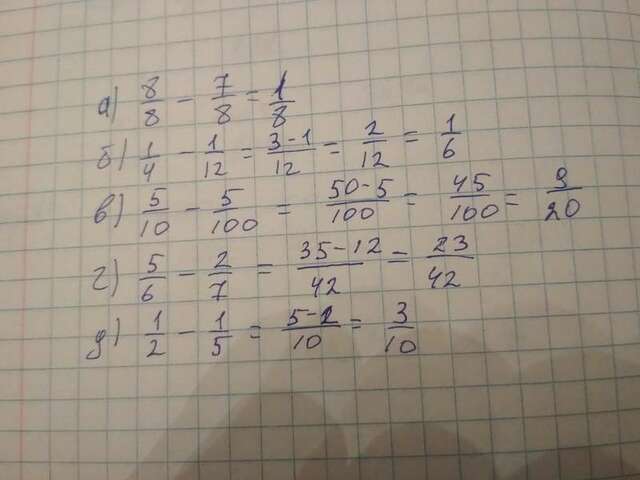 а) 8/8 - 7/8 = 1/8
б) 1/4 - 1/12 = 3-1/12 = 2/12 = 1/6
в) 5/10 - 5/100 = 50-5/100 = 45/100 = 9/20
г) 5/6 - 2/7 = 35-12/42 = 23/42
д) 1/2 - 1/5 = 5-2/10 = 3/10